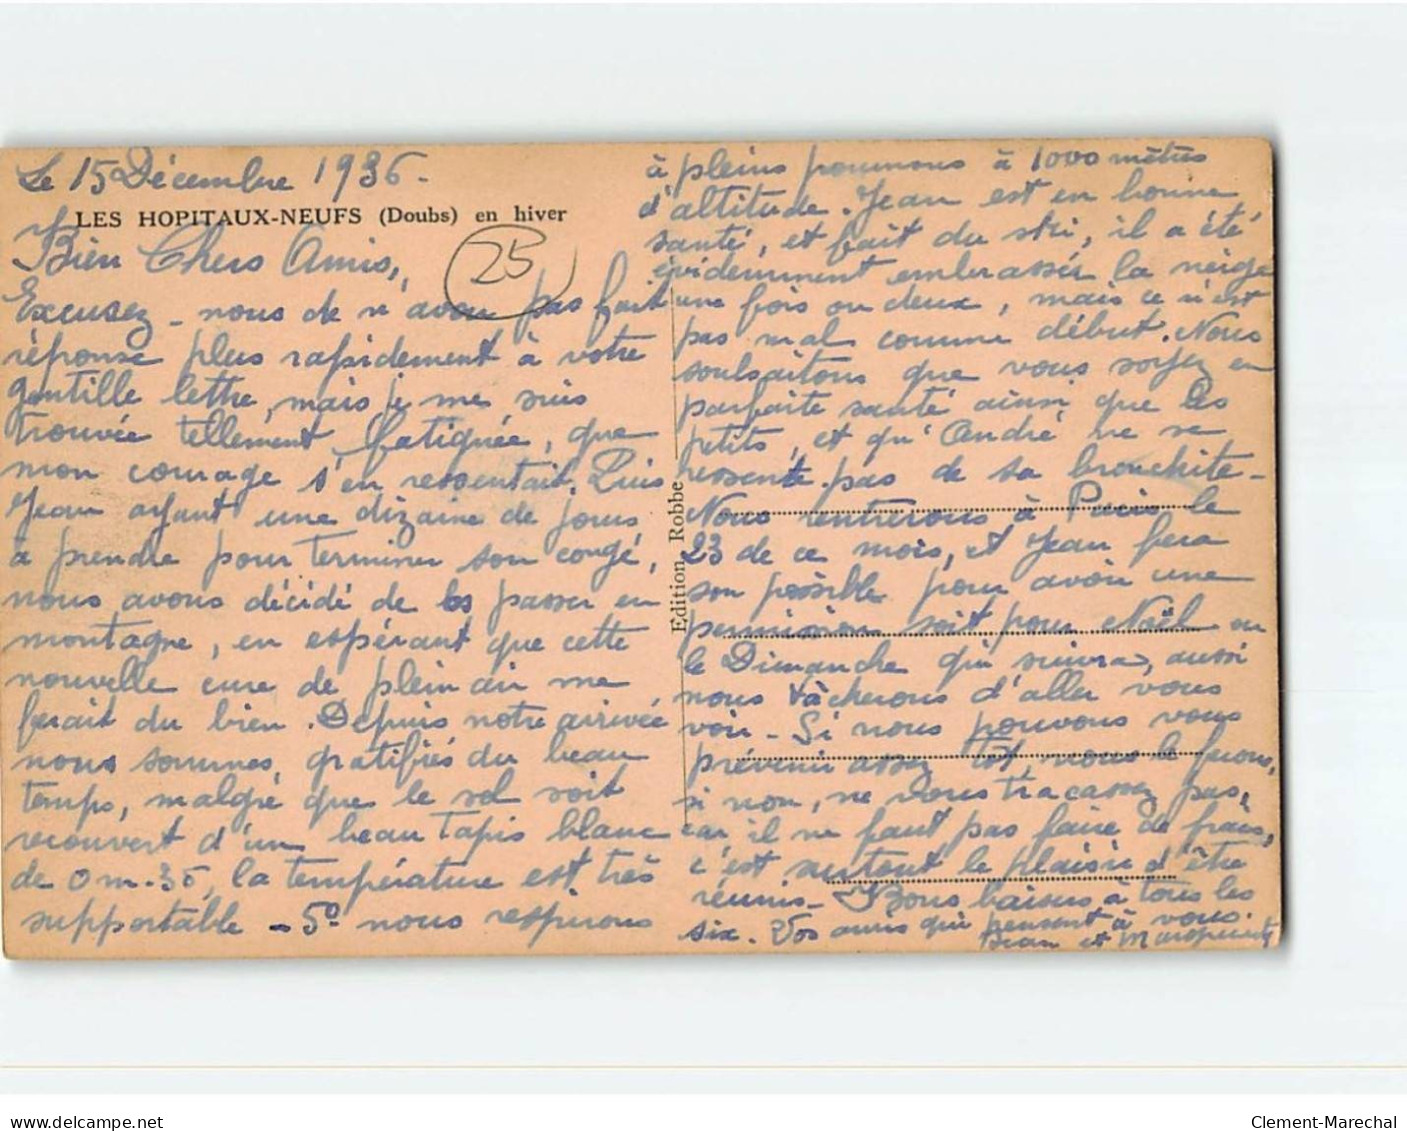 Le 15 Décembre 1936.
LES HOPITAUX-NEUFS (Doubs) en hiver
Bien Chers Amis,
25
Excusez-nous de n'avoir pas fait
réponse plus rapidement à votre
gentille lettre, mais je me suis
trouvée tellement fatiguée, que
mon courage s'en ressentait. Puis
Jean ayant une dizaine de jours
à prendre pour terminer son congé,
nous avons décidé de les passer en
montagne, en espérant que cette
nouvelle cure de plein air me
ferait du bien. Depuis notre arrivée
nous sommes, gratifiés du beau
temps, malgré que le sol soit
recouvert d'un beau tapis blanc
de 0m.35, la température est très
supportable - 5° nous respirons
à pleins poumons à 1000 mètres
d'altitude. Jean est en bonne
santé, et fait du ski, il a été
évidemment embrasser la neige
une fois ou deux, mais ce n'est
pas mal comme début. Nous
souhaitons que vous soyez en
parfaite santé ainsi que les
petits, et qu'André ne se
ressente pas de sa bronchite-
Nous rentrerons à Paris le
23 de ce mois, et Jean fera
son possible pour avoir une
permission soit pour Noël ou
le Dimanche qui suivra, aussi
nous tâcherons d'aller vous
voir - Si nous pouvons vous
prévenir assez tôt, nous le ferons,
si non, ne vous tracassez pas,
car il ne faut pas faire de frais,
c'est surtout le plaisir d'être
réunis - Bons baisers à tous les
six. Vos amis qui pensent à vous.
Jean et Marguerite
Edition Robbe
delcampe.net
Clement-Marechal